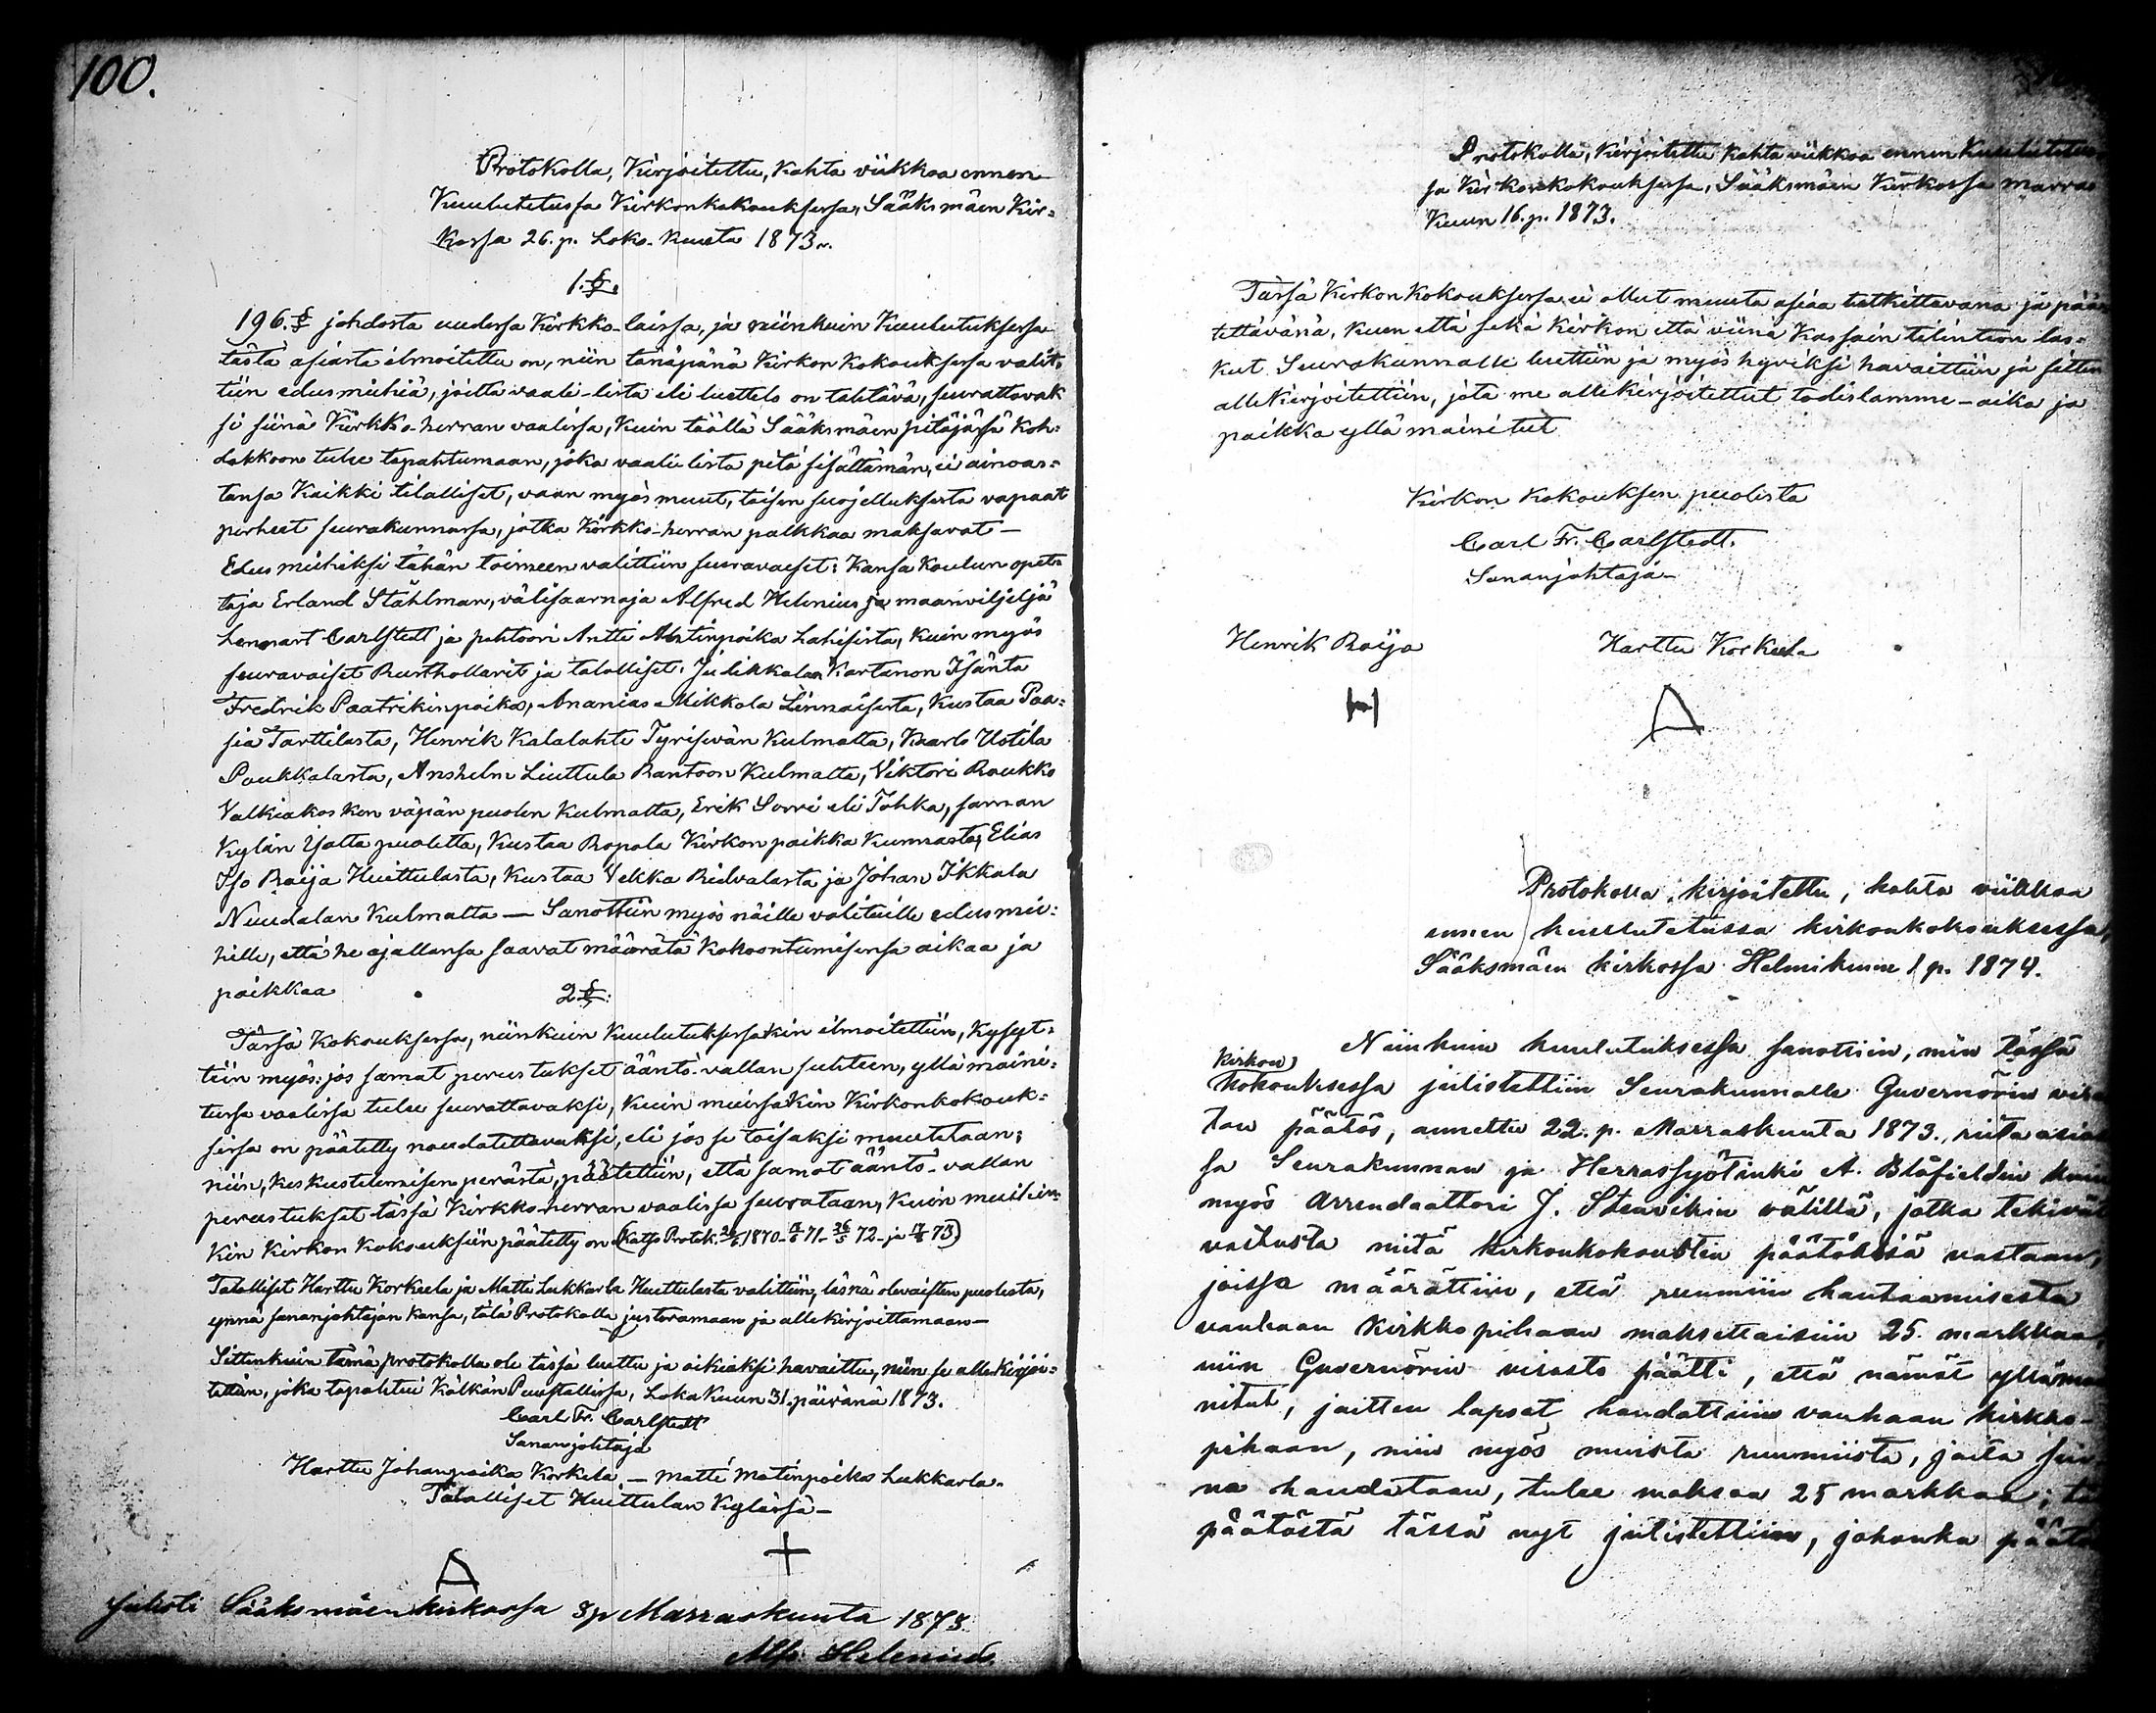 100.
Protokolla, Kirjoitettu, Kahta viikkoa ennen
Kuulutetussa Kirkonkokouksessa, Sääksmäen Kir=
kossa 26. p. Loko-Kuuta 1873.
1.§.
196.§ johdosta uudessa Kirkko-laissa, ja niinkuin Kuulutuksessa
tästä asiasta ilmoitettu on, niin tänäpänä Kirkon Kokouksessa valit=
tiin edusmiehiä, joilta vaali-lista eli luettelo on tehtävä, seurattavak
si siinä Kirkko-herran vaalissa, Kuin täällä Sääksmäen pitäjässä koh=
dakkoon tulee tapahtumaan, joka vaali lista pitä sisältämän, ei ainoas=
tansa Kaikki tilalliset, vaan myös muut, toisen suojelluksesta vapaat
perheet seurakunnassa, jotka Kirkko-herran palkkaa maksavat —
Edusmieheksi tähän toimeen valittiin seuravaiset: Kansa Koulun opet=
taja Erland Ståhlman, välisaarnaja Alfred Helenius ja maanviljeljä
Lennart Carlstedt ja pehtoori Antti Antinpoika Lahisista, Kuin myös
seuravaiset Rusthollarit ja talolliset: Jutikkalan Kartanon Isäntä
Fredrik Paatrikinpoika, Ananias Mikkola Linnaisesta, Kustaa Paa=
sia Tarttilasta, Henrik Kalalahti Tyrisevän Kulmalta, Kaarlo Uotila
Paukkalasta, Anshelm Liuttula Rantoon Kulmalta, Viktori Roukko
Valkiakosken väpän puolen Kulmalta, Erik Sorri eli Tohka, saman
Kylän Ylatta puoletta, Kustaa Ropola Kirkon paikka Kunnasta, Elias
Iso Raija Huittulasta, Kustaa Vekka Ridvalasta ja Johan Ikkala
Nuudalan Kulmalta — Sanottiin myös näille valituille edusmie=
hille, että he ajallansa saavat määrätä Kokoontumisensa aikaa ja
paikkaa
2§:
Tässä Kokouksessa, niinkuin Kuulutuksessakin ilmoitettiin, Kysyt=
tiin myös: jos samat perustukset ääntö-vallan suhteen, yllä maini=
tussa vaalissa tulee seurattavaksi, Kuin muissakin Kirkonkokouk=
sissa on päätetty noudatettavaksi, eli jos se toisaksi muutetaan;
niin, keskustelemisen perästä, päätettiin, että samat ääntö-vallan
perustukset tässä Kirkko-herran vaalissa seurataan, Kuin muisin=
Kin Kirkon Kokouksiin päätetty on (Katso Protok. 1870 - 71 - 72 - ja 73)
Talolliset Harttu Korkeela ja Matti Lukkarla Huittulasta valittiin, läsnä olevaisten puolesta,
ynnä sananjohtajan kansa, tälä Protokolla justeramaan ja allekirjoittamaan —
Sittenkuin tämä protokolla ole tässä luettu ja oikiaksi havaittu, niin se allekirjoi=
tettiin, joka tapahtui Kälkän Puustallissa, Lokakuun 31. päivänä 1873.
Carl Fr. Carlstedt
Sananjohtaja
Harttu Johanpoika Korkela — Matti Matinpoika Lukkarla.
Talolliset Huittulan Kylässä —
Julisti Sääksmäen kirkossa 9 p Marraskuuta 1873.
Alfr. Helenius.
Protokolla, Kirjoitettu kahta viikkoa ennen Kuulutetus
sa Kirkonkokouksessa, Sääksmäen Kirkossa marras
Kuun 16. p. 1873.
Tässä Kirkon Kokouksessa ei ollut muuta asiaa tutkittavana ja pää
tettävänä, Kuin että sekä Kirkon että viinä Kassain tilintion las=
kut Seurakunnalle luettiin ja myös hyviksi havaittiin ja sitten
allekirjoitettiin, jota me allekirjoitettut todislamme — aika ja
paikka yllä mainitut
Kirkon Kokouksen puolesta
Carl Fr. Carlstedt.
Sananjohtaja —
Henrik Raija Harttu Korkeela
H A
Protokolla, kirjoitettu, kahta viikkoa
ennen kuulutetussa kirkonkokouksessa,
Sääksmäen kirkossa Helmikuun 1 p. 1874.
Niinkuin kuulutuksessa sanottiin, niin tässä
Kirkon
kokouksessa julistettiin Seurakunnalle Guvernörin viras
ton päätös, annettu 22. p. Marraskuuta 1873., riita asias
sa Seurakunnan ja Herrassyötinki A. Blåfieldin kuin
myös Arrendaattori J. Stenvikin välillä, jotka tekivät
vastusta niitä kirkonkokousten päätöksiä vastaan,
joissa määrättiin, että ruumiin hautaamisesta
vanhaan kirkkopihaan maksettaisiin 25. markkaa,
niin Guvernörin virasto päätti, että nämät yllämai
nitut, joitten lapset haudattiin vanhaan kirkko-
pihaan, niin myös muista ruumiista, joita siin
na haudataan, tulee maksaa 25 markkaa; tä
päätöstä tässä nyt julistettiin, johonka päätö